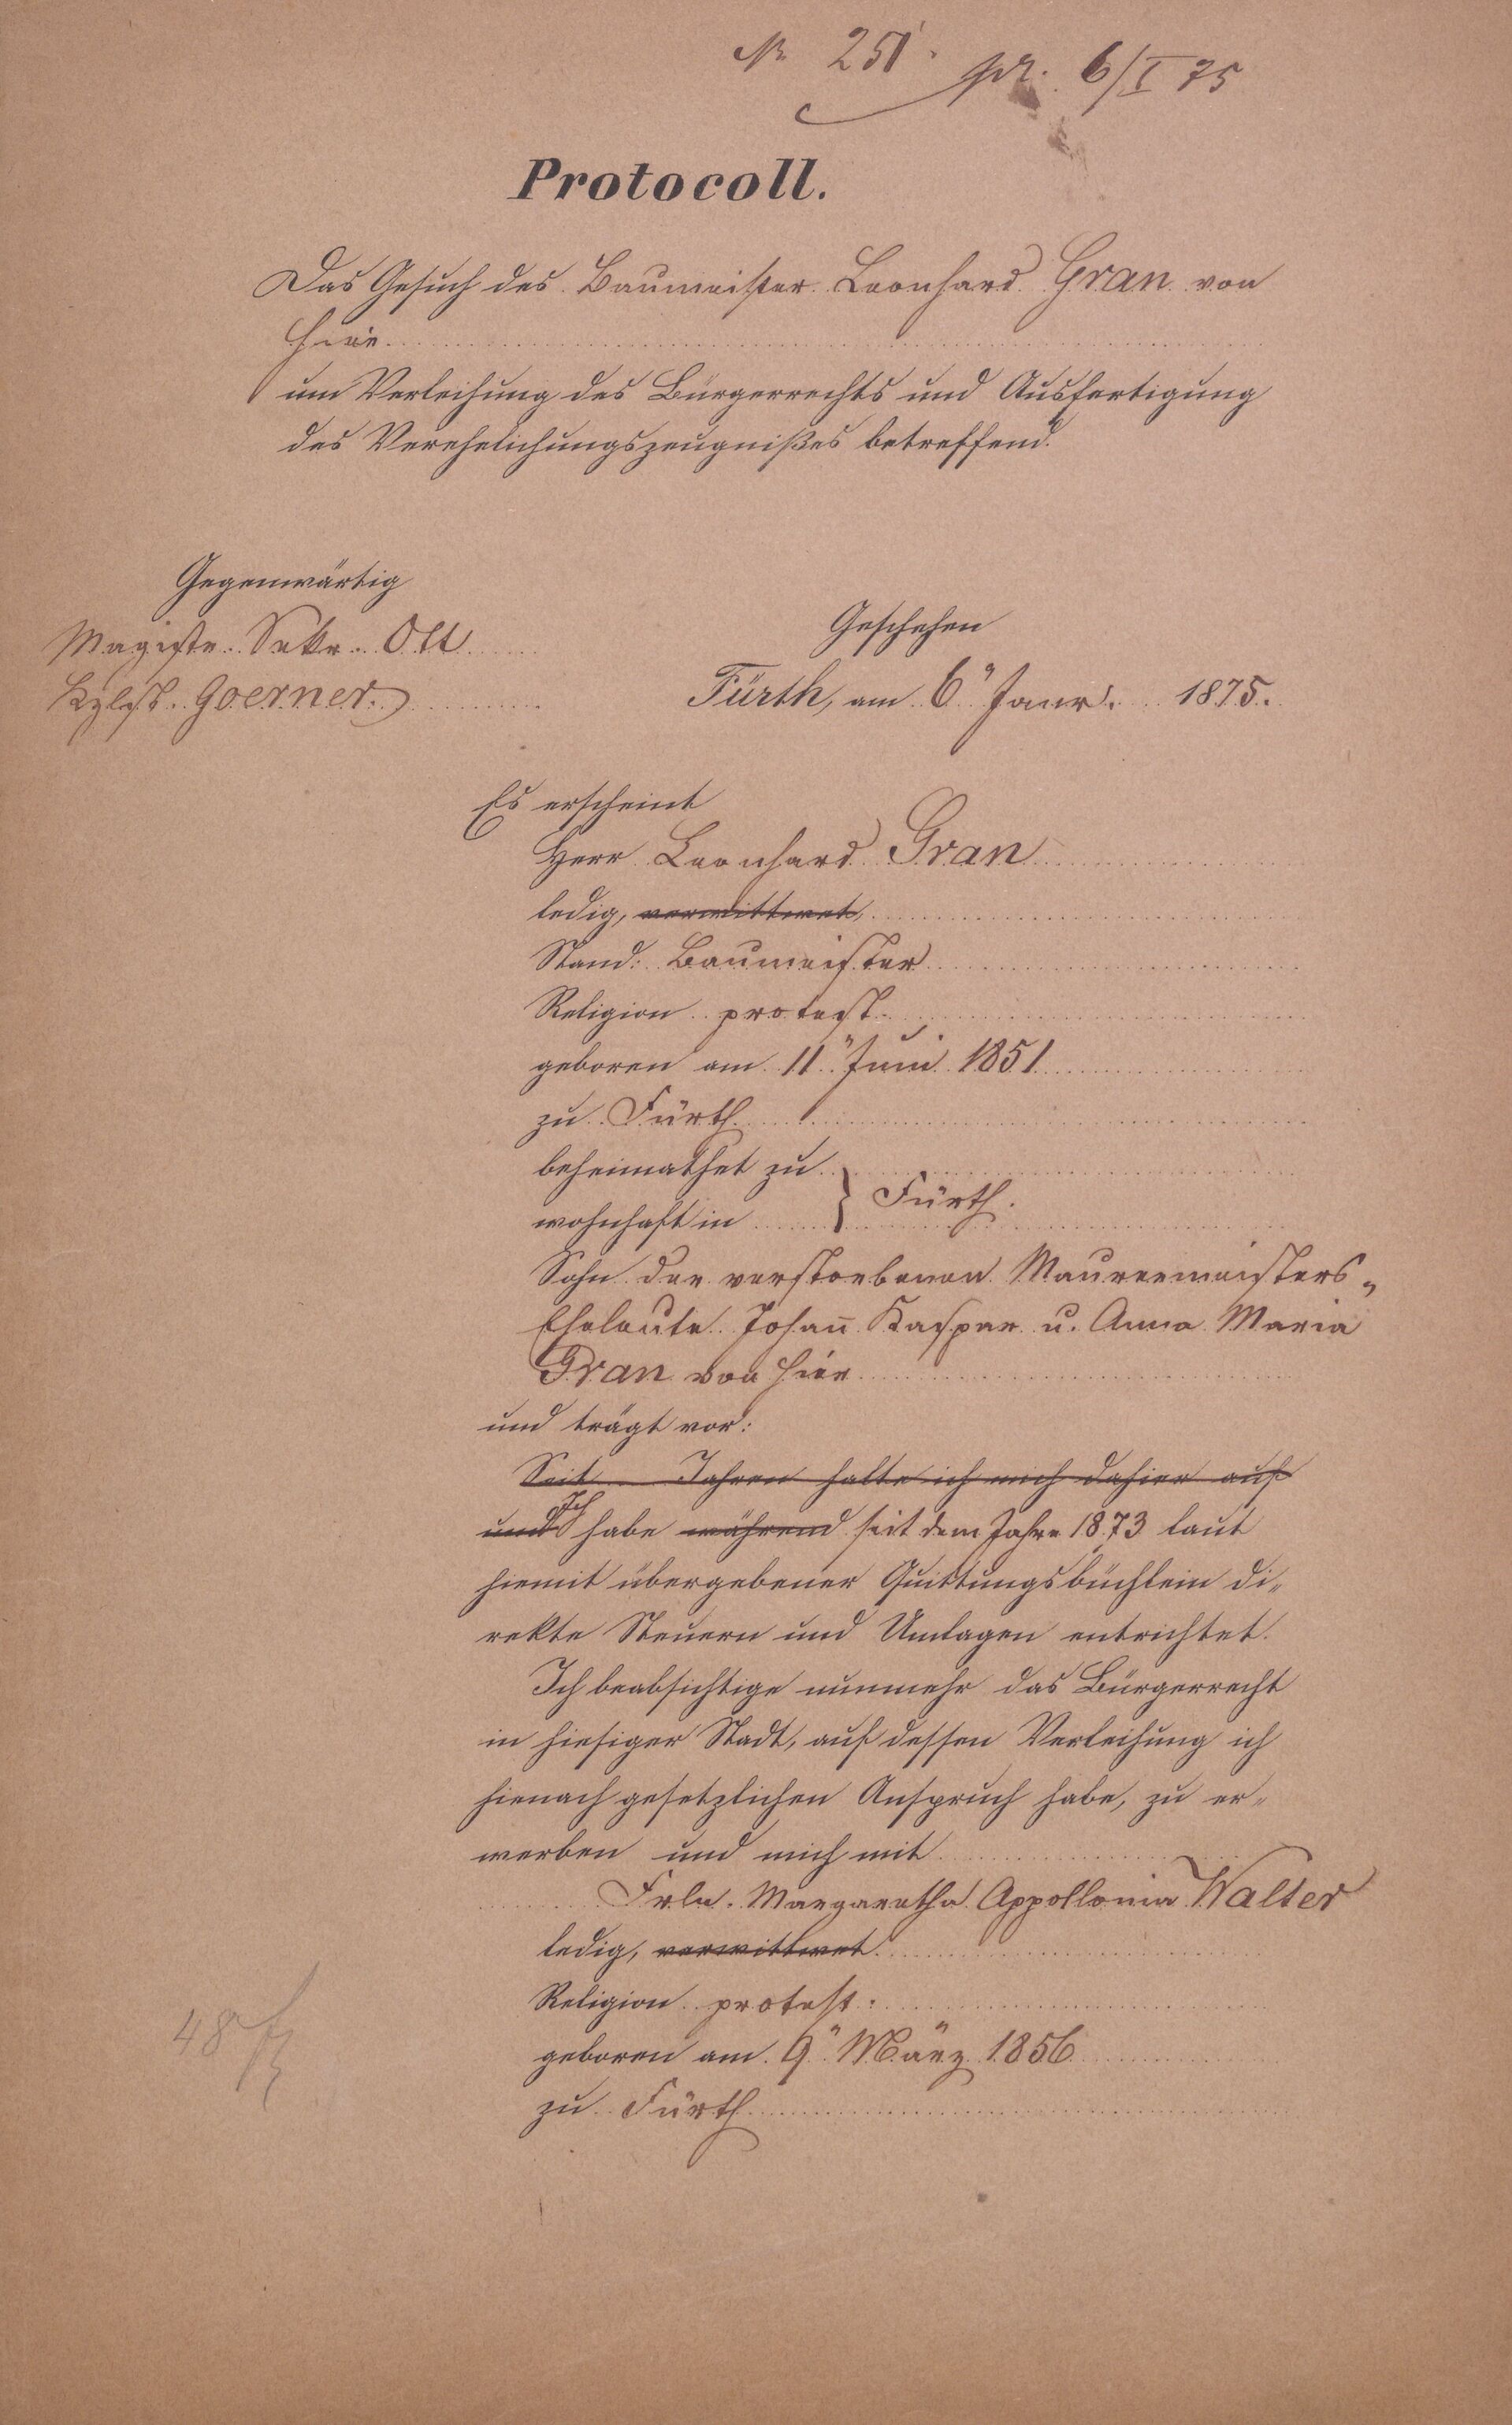 Nr. 251. pr. 6/I 75
Protocoll.
Das Gesuch des Baumeister Leonhard Gran von
hier
um Verleihung des Bürgerrechts und Ausfertigung
des Verehelichungszeugnißes betreffend.
Gegenwärtig
Magistr. Sekr. Ott
Kzlist. Goerner.
Geschehen
Fürth, am 6" Janr. 1875.
Es erscheint
Herr Leonhard Gran
ledig, verwittwet,
Stand: Baumeister
Religion protest.
geboren am 11" Juni 1851
zu Fürth
beheimathet zu
} Fürth.
wohnhaft in
Sohn der verstorbenen Maurermeisters-
Eheleute Johann Kaspar u. Anna Maria
Gran von hier
und trägt vor:
Seit Jahren halte ich mich dahier auf
und Ich habe während seit dem Jahre 1873 laut
hiemit übergebener Quittungsbüchlein di-
rekte Steuern und Umlagen entrichtet.
Ich beabsichtige nunmehr das Bürgerrecht
in hiesiger Stadt, auf dessen Verleihung ich
hienach gesetzlichen Anspruch habe, zu er-
werben und mich mit
Frln. Margaretha Appollonia Walter
ledig, verwittwet
Religion protest.
geboren am 9" März 1856
zu Fürth
48